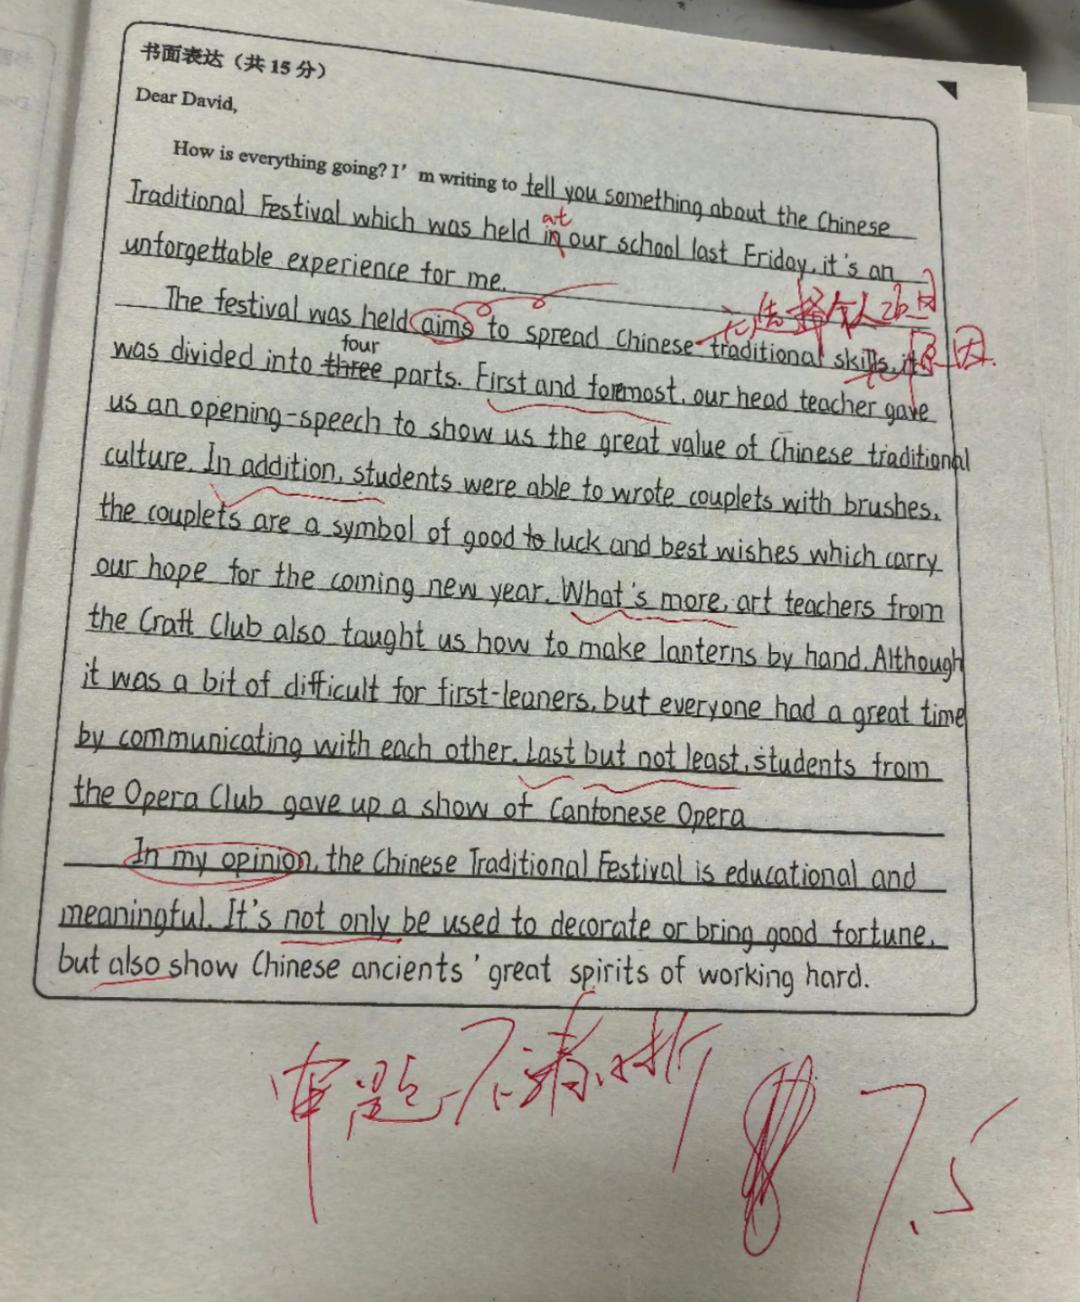 书面表达（共 15 分）
Dear David,
How is everything going? I'm writing to tell you something about the Chinese
Traditional Festival which was held in our school last Friday, it's an
at
unforgettable experience for me.
The festival was held aims to spread Chinese traditional skills, it
four
was divided into three parts. First and foremost, our head teacher gave
us an opening-speech to show us the great value of Chinese traditional
culture. In addition, students were able to wrote couplets with brushes,
the couplets are a symbol of good to luck and best wishes which carry
our hope for the coming new year. What's more, art teachers from
the Craft Club also taught us how to make lanterns by hand. Although
it was a bit of difficult for first-leaners, but everyone had a great time
by communicating with each other. Last but not least, students from
the Opera Club gave up a show of Cantonese Opera
In my opinion, the Chinese Traditional Festival is educational and
meaningful. It's not only be used to decorate or bring good fortune,
but also show Chinese ancients' great spirits of working hard.
审题不清晰
7.5